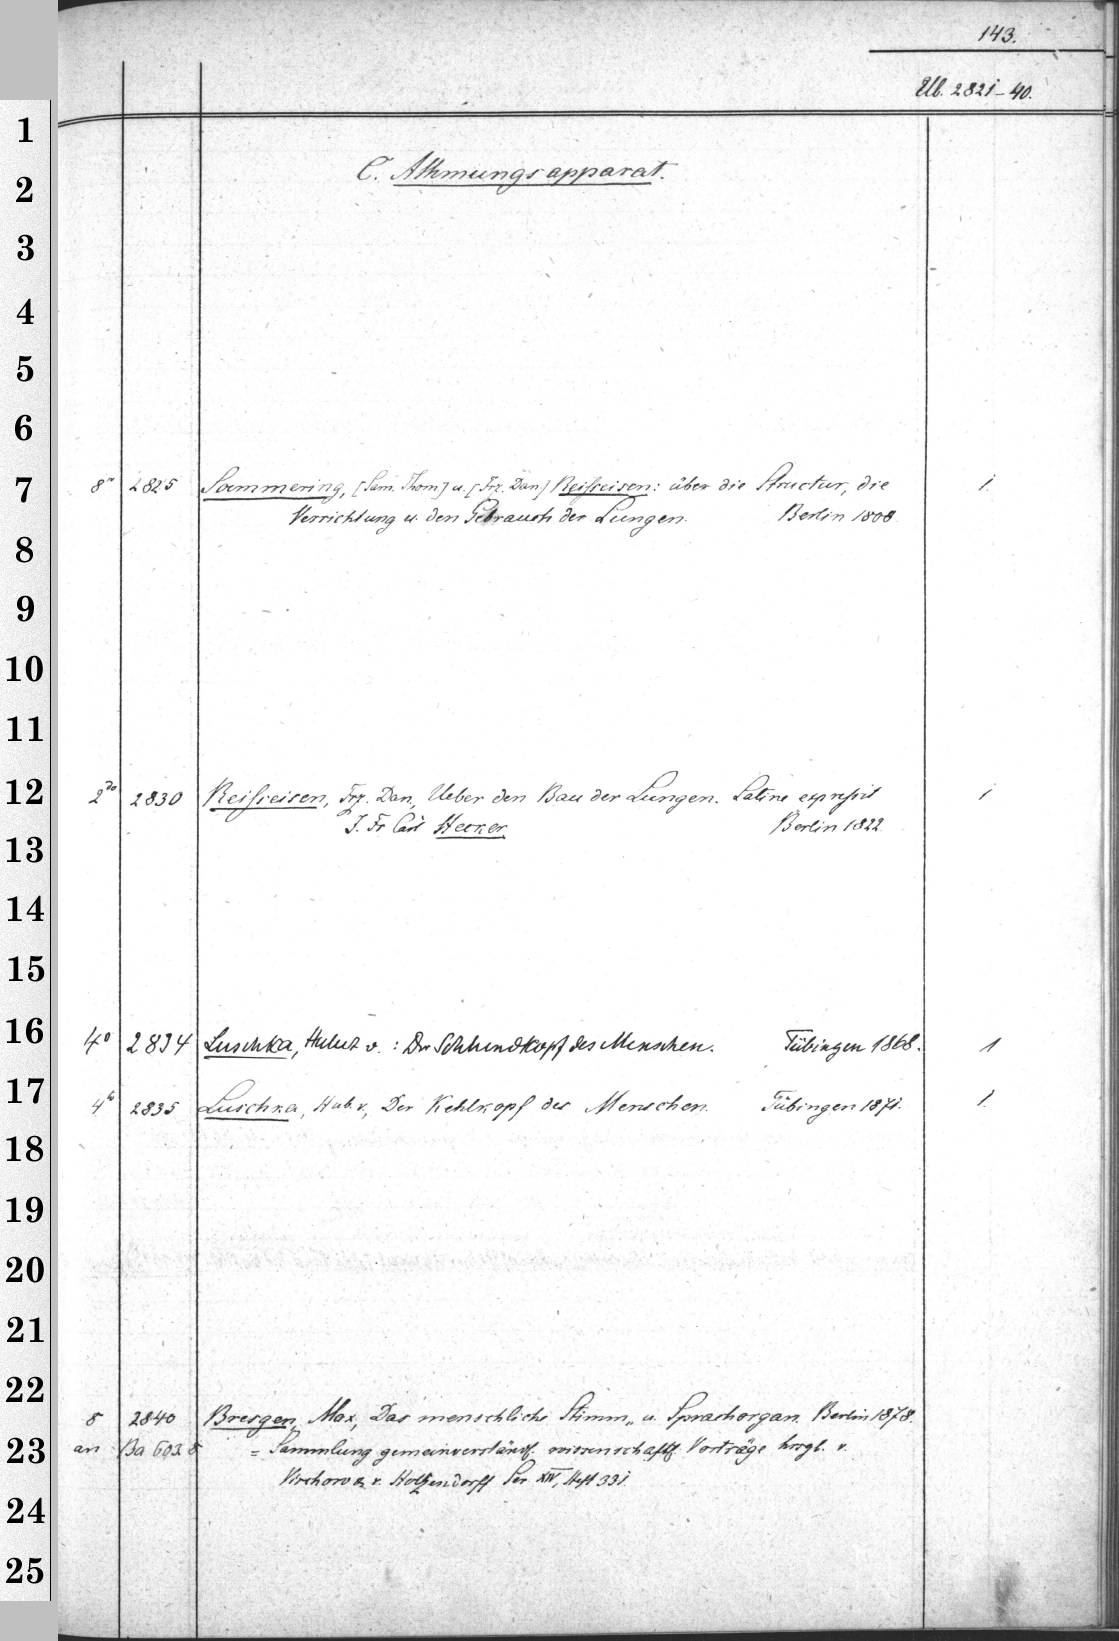 143.
Ub. 2821-40.
C. Athmungsapparat.
8° 2825 Sömmering, [Sam. Thom] u. [Frz. Dan] Reifseisen: über die Structur, die 1.
Verrichtung u. den Gebrauch der Lungen. Berlin 1808.
2do 2830 Reifseisen, Frz. Dan, Ueber den Bau der Lungen. Latine expressit 1
J. Fr Carl Hecker Berlin 1822.
4° 2834 Luschka, Hubert v.: Der Schlundkopf des Menschen. Tübingen 1868. 1
4to 2835 Luschka, Hub. v, Der Kehlkopf des Menschen. Tübingen 1871. 1.
8 2840 Bresgen, Max, Das menschliche Stimm- u. Sprachorgan. Berlin 1878.
an Ba 603 8 = Sammlung gemeinverständl. wissenschaftl. Vorträge hrsgb. v.
Virchow & v. Holtzendorff Ser XIV, Heft 331.
1
2
3
4
5
6
7
8
9
10
11
12
13
14
15
16
17
18
19
20
21
22
23
24
25